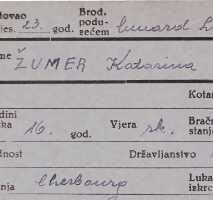 tovao Brod.
jes. 23. god. podu- Cunard L
zećem
me ŽUMER Katarina
Kotar
dini
ka 16. god. Vjera rk. Bračn
stanje
dnost Državljanstvo
nja Cherbourg Luka
izkrc